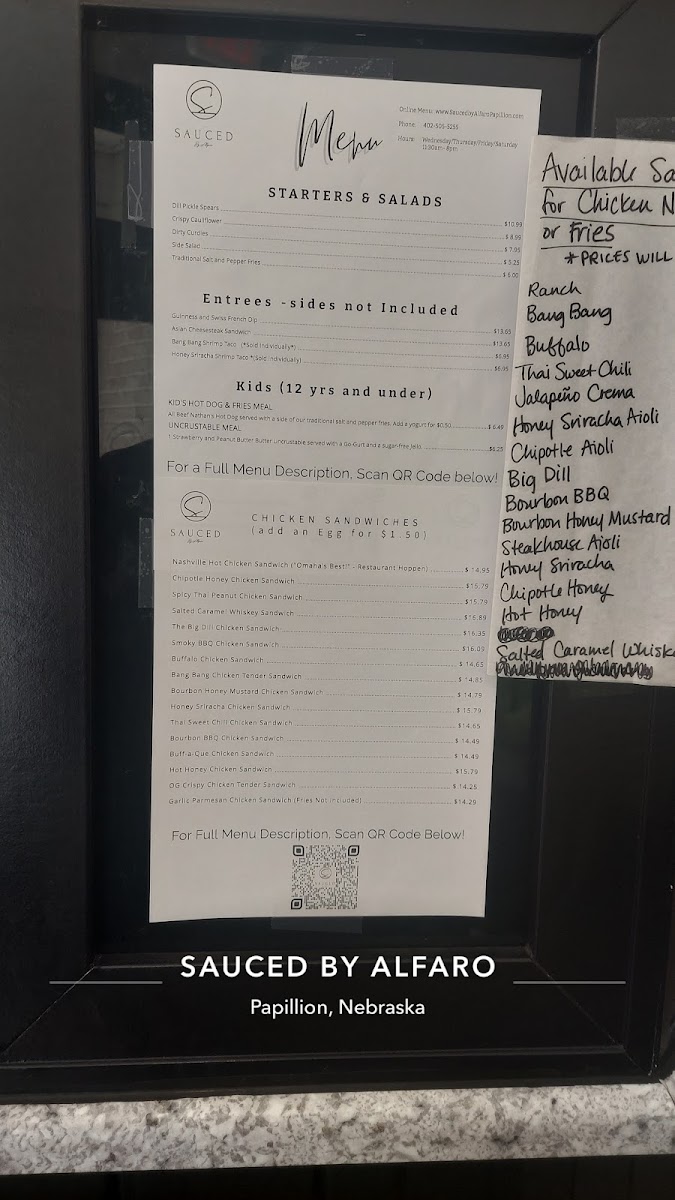 SAUCED
Menu
Online Menu: www.SaucedbyAlfaroPapillion.com
Phone: 402-505-5255
Hours: Wednesday/Thursday/Friday/Saturday
11:30am - 8pm
STARTERS & SALADS
Dill Pickle Spears $10.99
Crispy Cauliflower $8.99
Dirty Curdies $7.95
Side Salad $5.25
Traditional Salt and Pepper Fries $5.00
Entrees -sides not Included
Guinness and Swiss French Dip $13.65
Asian Cheesesteak Sandwich $13.65
Bang Bang Shrimp Taco (*Sold Individually*) $6.95
Honey Sriracha Shrimp Taco *(Sold Individually) $6.95
Kids (12 yrs and under)
KID'S HOT DOG & FRIES MEAL
All Beef Nathan's Hot Dog served with a side of our traditional salt and pepper fries. Add a yogurt for $0.50 $6.49
UNCRUSTABLE MEAL
1 Strawberry and Peanut Butter Butter uncrustable served with a Go-Gurt and a sugar-free Jello $6.25
For a Full Menu Description, Scan QR Code below!
SAUCED
CHICKEN SANDWICHES
(add an Egg for $1.50)
Nashville Hot Chicken Sandwich ("Omaha's Best!" - Restaurant Hoppen) $14.95
Chipotle Honey Chicken Sandwich $15.79
Spicy Thai Peanut Chicken Sandwich $15.79
Salted Caramel Whiskey Sandwich $15.89
The Big Dill Chicken Sandwich $16.35
Smoky BBQ Chicken Sandwich $16.09
Buffalo Chicken Sandwich $14.65
Bang Bang Chicken Tender Sandwich $14.65
Bourbon Honey Mustard Chicken Sandwich $14.79
Honey Sriracha Chicken Sandwich $15.79
Thai Sweet Chili Chicken Sandwich $14.65
Bourbon BBQ Chicken Sandwich $14.49
Buff-a-Que Chicken Sandwich $14.49
Hot Honey Chicken Sandwich $15.79
OG Crispy Chicken Tender Sandwich $14.25
Garlic Parmesan Chicken Sandwich (Fries Not Included) $14.29
For Full Menu Description, Scan QR Code Below!
Available Sa
for Chicken N
or Fries
*PRICES WILL
Ranch
Bang Bang
Buffalo
Thai Sweet Chili
Jalapeño Crema
Honey Sriracha Aioli
Chipotle Aioli
Big Dill
Bourbon BBQ
Bourbon Honey Mustard
Steakhouse Aioli
Honey Sriracha
Chipotle Honey
Hot Honey
Salted Caramel Whisk
SAUCED BY ALFARO
Papillion, Nebraska